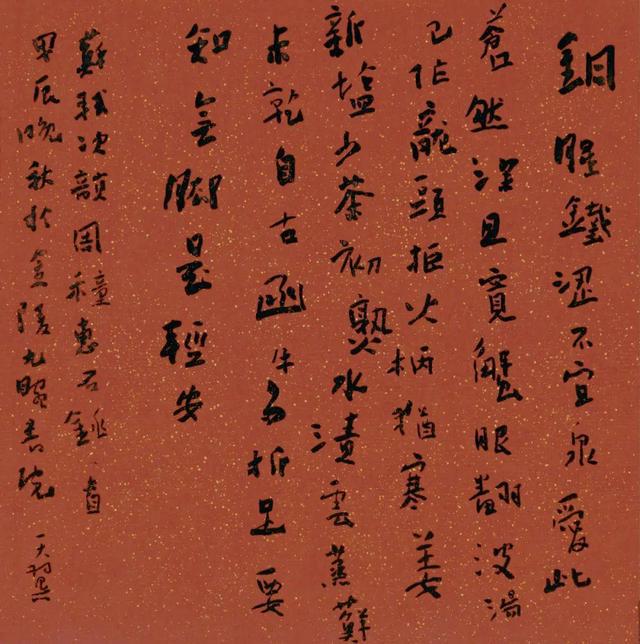 銅腥鐵澀不宜泉愛此
蒼然深且寬蟹眼翻波湯
已作龍頭拒火柄猶寒姜
新塩少茶初熟水漬雲蒸蘚
未乾自古函牛多折足要
知無脚是輕安
蘇軾次韻周穜惠石銚一首
甲辰晚秋於金陵九曜書院